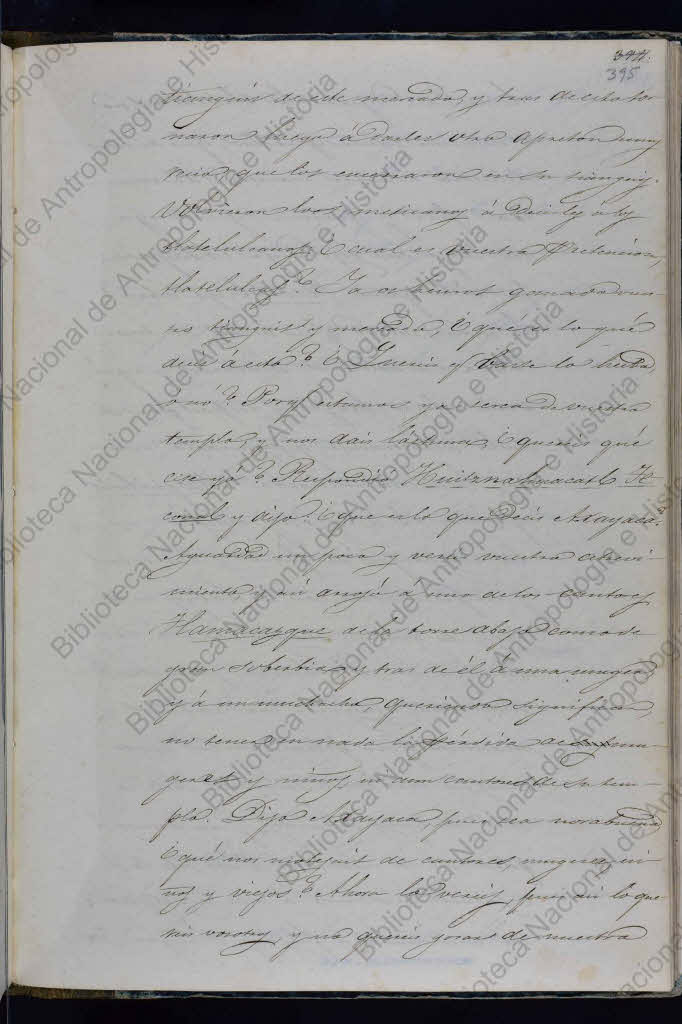 394.
395
tianguis de este mercado, y tras de esto tor
naron luego á darles otro apreton muy
recio, que los encerraron en su tianguiz.
Volvieron los mexicanos á decirles á los
tlatelulcanos ¿cual es vuestra pretencion,
tlatelulcas? Ya os hemos ganado vues-
tro tianguis y mercado, ¿qué es lo que
decis á esto? ¿ y baste lo hecho,
o nó? Porqe estamos ya cerca de vuestro
templo, y nos dais lástima, ¿quereis que
cese ya? Respondió Huitznahuacatl Te-
conal y dijo: ¿que es lo que decis Axayaca?
Aguardad un poco y vereis vuestro atrevi-
miento y así arrojó á uno de los cantores
Tlamacazque de la torre abajo como de
gran soberbia, y tras de él á una muger,
y á un muchacho, queriendo significar,
no tener en nada la pérdida de mu-
geres, y niños, ni aun cantores de su tem-
plo. Dijo Axayaca, pues sea norabuena
¿qué nos motejais de cantores, mugeres, ni-
ños y viejos? Ahora lo vereis, pues asi lo que-
reis vosotros, y no quereis gozar de nuestra
Biblioteca Nacional de Antropología e Historia